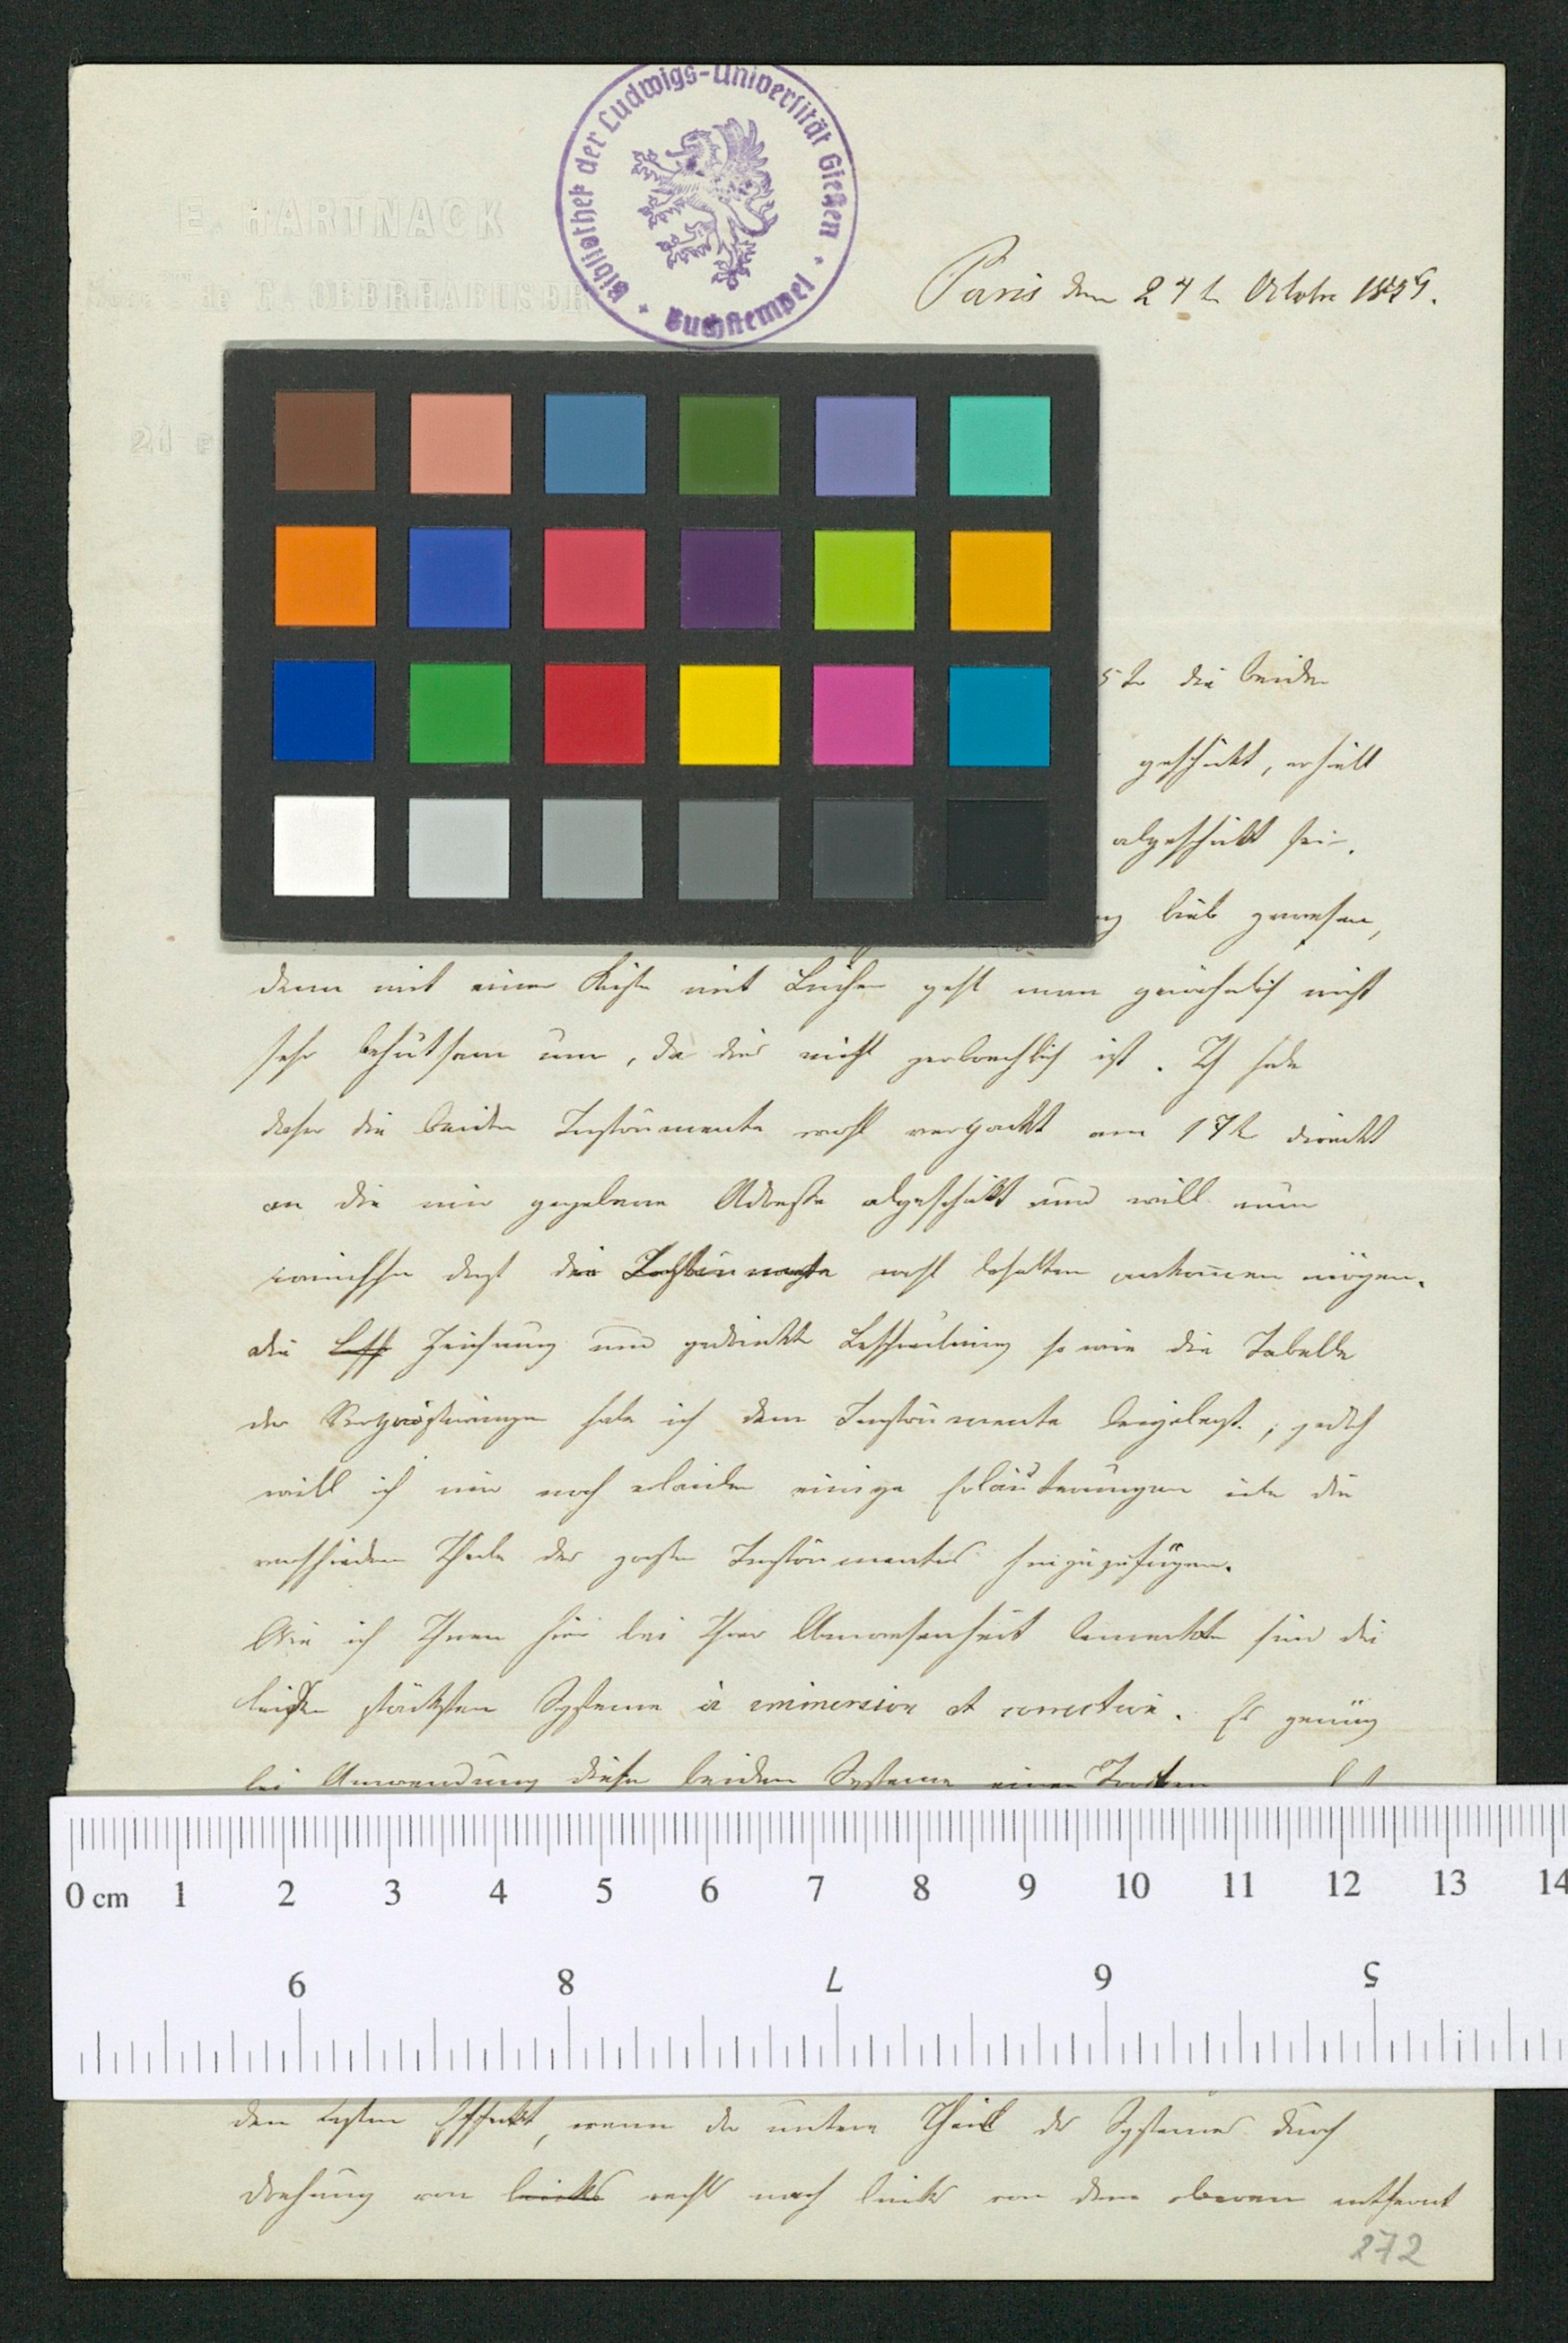 Bibliothek der Ludwigs-Universität Gießen
* Buchstempel *
E. HARTNACK
de G. OBERHAEUSER
21 P
Paris den 24t Octobre 1859.
5t die beiden
geschickt, erhielt
abgeschickt sei.
lieb gewesen,
denn mit einer Kiste mit Bücher geht man gewöhnlich nicht
sehr behutsam um, da dies nicht zerbrechlich ist. Ich habe
daher die beiden Instrumente wohl verpackt am 17t direckt
an die mir gegebene Adresse abgeschickt und will nun
wünschen dass die Instrumente wohl behalten ankommen mögen.
die Zeichnung und gedruckte Beschreibung so wie die Tabelle
der Vergrösserungen habe ich dem Instrumente beigelegt; jedoch
will ich mir noch erlauben einige Erläuterungen über die
verschieden Theile des großen Instrumentes hinzuzufügen.
Wie ich Ihnen hier bei Ihrer Anwesenheit bemerkte sind die
beiden stärksten Systeme à immersion et correction. Es genüg
bei Anwendung dieser beiden Systeme einen Tropfen
0 cm 1 2 3 4 5 6 7 8 9 10 11 12 13 14
9 8 7 6 5
den besten Effekt, wenn der untere Theil des Systemes durch
Drehung von links recht nach links von dem oberen entfernt
272